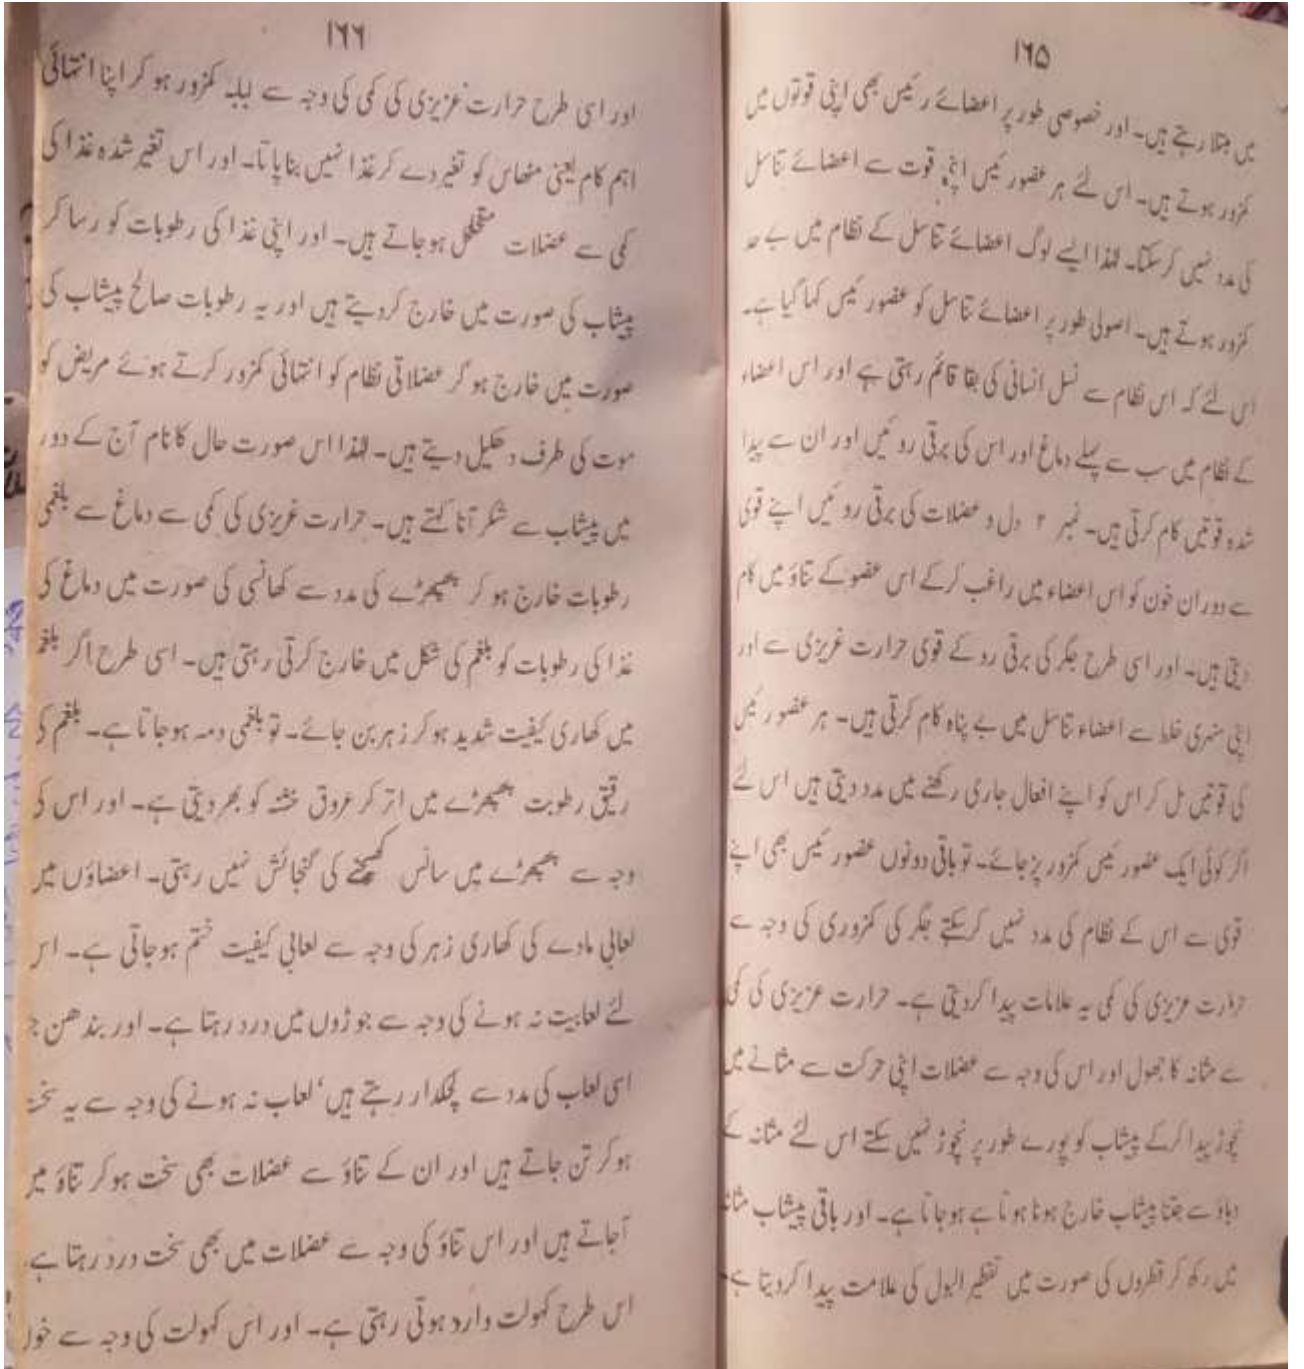 ۱۶۵
میں مبتلا رہتے ہیں۔ اور خصوصی طور پر اعضائے رئیس بھی اپنی قوتوں میں
کمزور ہوتے ہیں۔ اس لئے ہر عضور کیس اپنی قوت سے اعضائے تناسل
کی مدد نہیں کرسکتا۔ لہٰذا ایسے لوگ اعضائے تناسل کے نظام میں بے حد
کمزور ہوتے ہیں۔ اصولی طور پر اعضائے تناسل کو عضور کیس کہا گیا ہے۔
اس لئے کہ اس نظام سے نسل انسانی کی بقا قائم رہتی ہے اور اس اعضاء
کے نظام میں سب سے پہلے دماغ اور اس کی برقی روئیں اور ان سے پیدا
شدہ قوتیں کام کرتی ہیں۔ نمبر ۲ دل و عضلات کی برقی روئیں اپنے قوی
سے دوران خون کو اس اعضاء میں راغب کرکے اس عضو کے تناؤ میں کام
دیتی ہیں۔ اور اسی طرح جگر کی برقی رو کے قوی حرارت غریزی سے اور
اپنی سنہری خلط سے اعضاء تناسل میں بے پناہ کام کرتی ہیں۔ ہر عضو رئیس
کی قوتیں مل کر اس کو اپنے افعال جاری رکھنے میں مدد دیتی ہیں اس لئے
اگر کوئی ایک عضور کیس کمزور پڑجائے۔ تو باقی دونوں عضور کیس بھی اپنے
قوی سے اس کے نظام کی مدد نہیں کرسکتے جگر کی کمزوری کی وجہ سے
حرارت عزیزی کی کمی یہ علامات پیدا کردیتی ہے۔ حرارت عزیزی کی کمی
سے مثانہ کا جھول اور اس کی وجہ سے عضلات اپنی حرکت سے مثانے میں
نچوڑ پیدا کرکے پیشاب کو پورے طور پر نچوڑ نہیں سکتے اس لئے مثانہ کے
دباؤ سے جتنا پیشاب خارج ہونا ہوتا ہے ہوجاتا ہے۔ اور باقی پیشاب مثانہ
میں رکھ کر قطروں کی صورت میں تقطیر البول کی علامت پیدا کردیتا ہے
۱۶۶
اور اسی طرح حرارت عزیزی کی کمی کی وجہ سے لبلبہ کمزور ہو کر اپنا انتہائی
اہم کام یعنی مٹھاس کو تغیر دے کر غذا نہیں بناپاتا۔ اور اس تغیر شدہ غذا کی
کمی سے عضلات متخلخل ہوجاتے ہیں۔ اور اپنی غذا کی رطوبات کو رسا کر
پیشاب کی صورت میں خارج کردیتے ہیں اور یہ رطوبات صالح پیشاب کی
صورت میں خارج ہو کر عضلاتی نظام کو انتہائی کمزور کرتے ہوئے مریض کو
موت کی طرف دھکیل دیتے ہیں۔ لہٰذا اس صورت حال کا نام آج کے دور
میں پیشاب سے شکر آنا کہتے ہیں۔ حرارت غریزی کی کمی سے دماغ سے بلغمی
رطوبات خارج ہو کر پھیپھڑے کی مدد سے کھانسی کی صورت میں دماغ کی
غذا کی رطوبات کو بلغم کی شکل میں خارج کرتی رہتی ہیں۔ اسی طرح اگر بلغم
میں کھاری کیفیت شدید ہو کر زہر بن جائے۔ تو بلغمی دمہ ہوجاتا ہے۔ بلغم کی
رقیق رطوبت پھیپھڑے میں اتر کر عروق خشنہ کو بھر دیتی ہے۔ اور اس کی
وجہ سے پھیپھڑے میں سانس کھینچنے کی گنجائش نہیں رہتی۔ اعضاؤں میں
لعابی مادے کی کھاری زہر کی وجہ سے لعابی کیفیت ختم ہوجاتی ہے۔ اس
لئے لعابیت نہ ہونے کی وجہ سے جوڑوں میں درد رہتا ہے۔ اور بندھن جو
اسی لعاب کی مدد سے لچکدار رہتے ہیں، لعاب نہ ہونے کی وجہ سے یہ سخت
ہو کر تن جاتے ہیں اور ان کے تناؤ سے عضلات بھی سخت ہوکر تناؤ میں
آجاتے ہیں اور اس تناؤ کی وجہ سے عضلات میں بھی سخت درد رہتا ہے
اس طرح کہولت وارد ہوتی رہتی ہے۔ اور اس کہولت کی وجہ سے خون